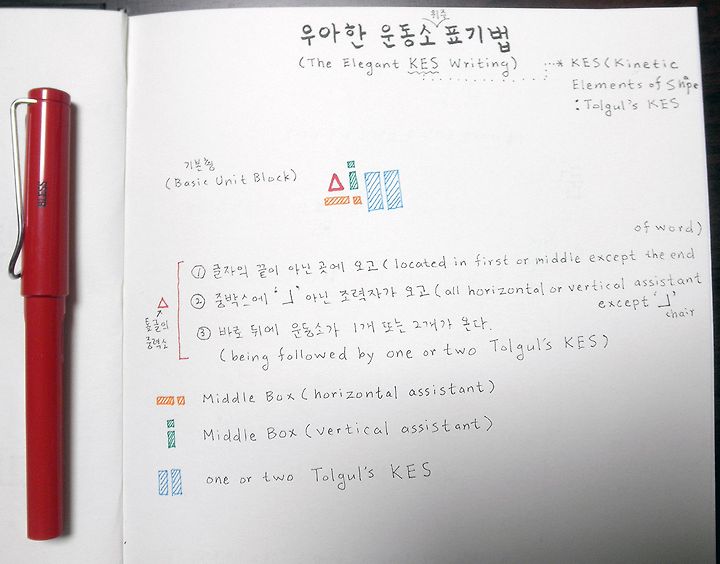 우아한 운동소 위주 표기법
(The Elegant KES Writing)
* KES (Kinetic
Elements of Shape
: Tolgul's KES
기본형
(Basic Unit Block)
of word)
① 글자의 끝이 아닌 곳에 오고 (located in first or middle except the end
② 중박스에 '┘' 아닌 조력자가 오고 (all horizontal or vertical assistant
except '┘'
chair
③ 바로 뒤에 운동소가 1개 또는 2개가 온다.
(being followed by one or two Tolgul's KES)
톨글의
중력소
Middle Box (horizontal assistant)
Middle Box (vertical assistant)
one or two Tolgul's KES